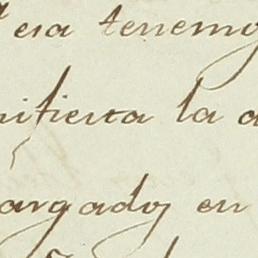 era tenemo
nifiesta la a
argados en